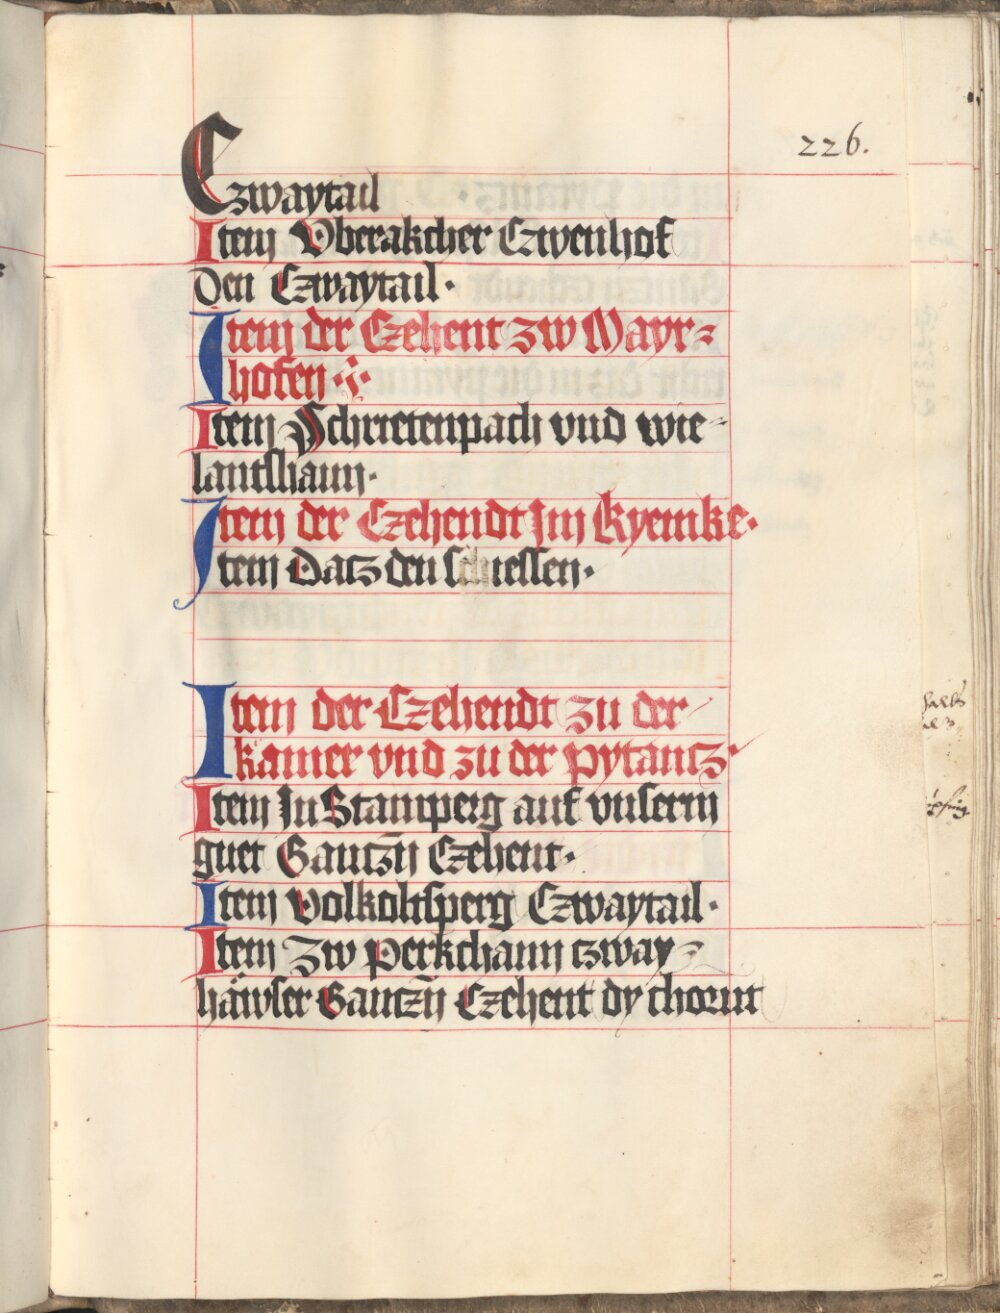 226.
Czwaytail
Item Oberakcher Czwenhof
Den Czwaytail.
Item der Czehent zw Mayr=
hofen
Item Schrietenpach vnd wie=
lantshaim.
Item der Czehendt Im Kyemke.
Item Datz den schiessen.
Item der Czehendt zu der
kamer vnd zu der pytantz
Item In Stamperg auf vnserm
guet Gantzn Czehent.
Item Volkoltsperg Czwaytail.
Item Zw Perkchaim czway=
häwser Gantzn Czehent dy chornt